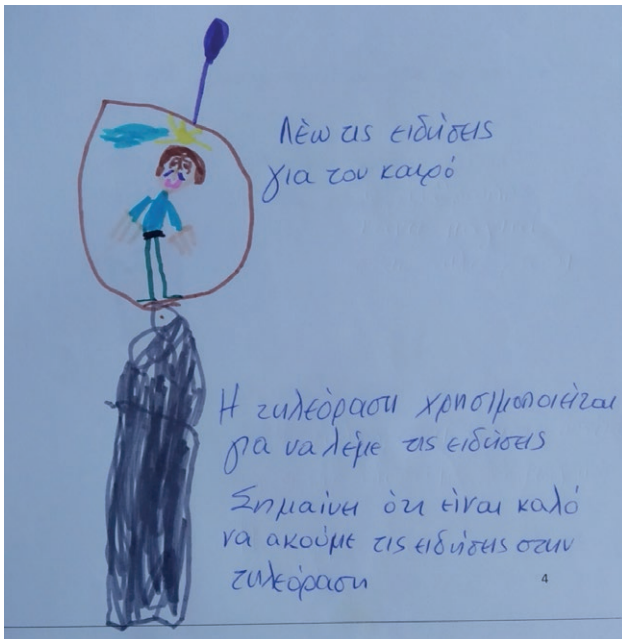 Λέω τις ειδήσεις
για τον καιρό
Η τηλεόραση χρησιμοποιείται
για να λέμε τις ειδήσεις
Σημαίνει ότι είναι καλό
να ακούμε τις ειδήσεις στην
τηλεόραση
4